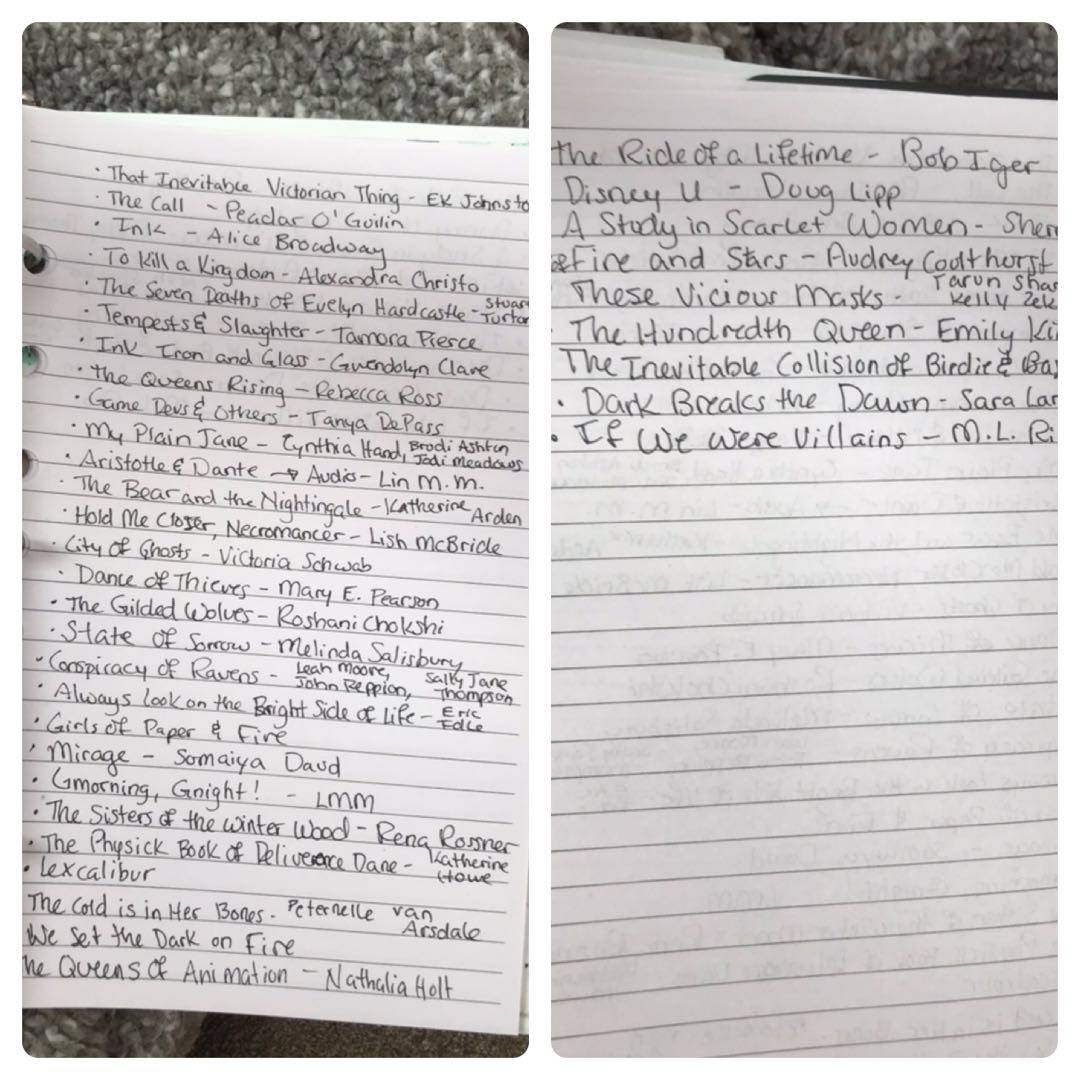 · That Inevitable Victorian Thing - EK Johnsto
· The Call - Peadar O'Guilin
· Ink - Alice Broadway
· To Kill a Kingdom - Alexandra Christo
· The Seven Deaths of Evelyn Hardcastle - Stuar Turton
· Tempests & Slaughter - Tamora Pierce
· Ink Iron and Glass - Gwendolyn Clare
· the Queens Rising - Rebecca Ross
· Game Devs & Others - Tanya DePass
· My Plain Jane - Cynthia Hand, Brodi Ashton Jodi Meadows
· Aristotle & Dante → Audio - Lin M.M.
· The Bear and the Nightingale - Katherine Arden
· Hold Me Closer, Necromancer - Lish McBride
· City of Ghosts - Victoria Schwab
· Dance of Thieves - Mary E. Pearson
· The Gilded Wolves - Roshani Chokshi
· State of Sorrow - Melinda Salisbury
· Conspiracy of Ravens - Leah Moore, John Reppion, Sally Jane Thompson
· Always look on the Bright Side of Life - Eric Idle
· Girls of Paper & Fire
· Mirage - Somaiya Daud
· Gmorning, Gnight! - LMM
· The Sisters of the Winter Wood - Rena Rossner
· The Physick Book of Deliverance Dane - Katherine Howe
· Lexcalibur
The Cold is in Her Bones - Peternelle van Arsdale
We Set the Dark on Fire
he Queens Of Animation - Nathalia Holt
the Ride of a Lifetime - Bob Iger
Disney U - Doug Lipp
A Study in Scarlet Women - Sher
Fire and Stars - Audrey Coulthurst
These Vicious Masks - Tarun Shan Kelly Zek
· The Hundredth Queen - Emily Ki
The Inevitable Collision of Birdie & Bas
· Dark Breaks the Dawn - Sara Lar
· If We Were Villains - M.L. Ri